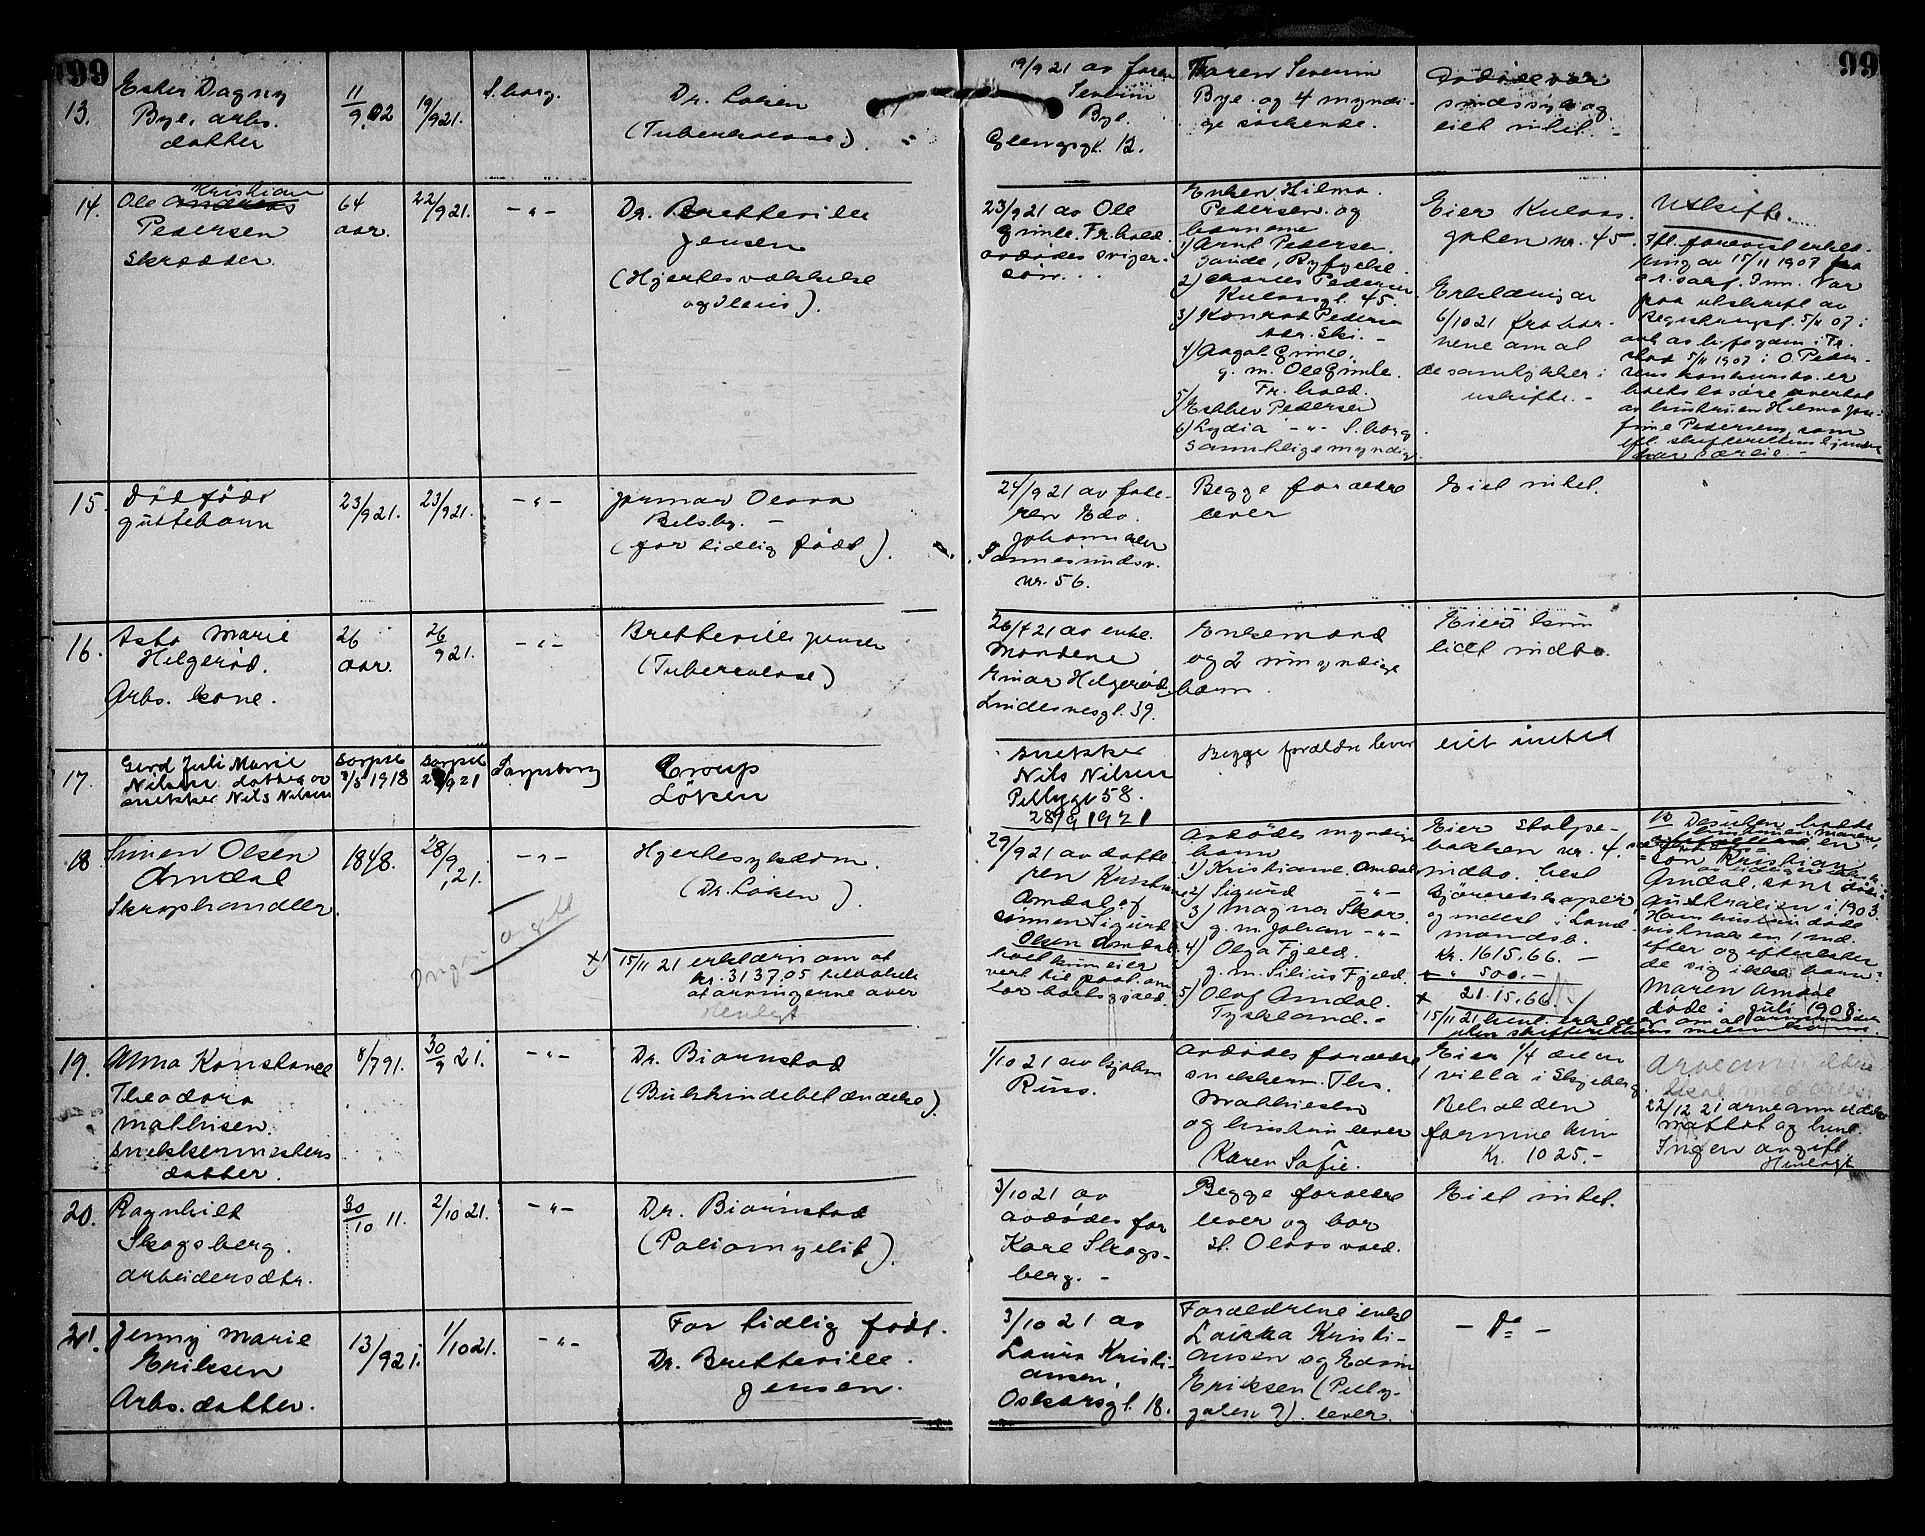 99
99
13.
Ester Dagny
Bye, arbs.
datter
11/9 02
19/9 21.
S.borg.
Dr. Løken
(Tuberkulose).
19/9 21 av faren
Severin
Bye.
Glengsgt. 12.
Faren Severin
Bye og 4 myndi-
ge søskende.
Avdøde var
sindssyk og
eiet intet. -
14.
Ole Kristian
Pedersen
Skrædder.
64
aar.
22/9 21.
- " -
Dr. Bretteville
Jensen
(Hjertesvækkelse
og Ileus).
23/9 21 av Ole
Grimle. Fr.hald.
avdødes sviger-
søn.
Enken Hilma
Pedersen og
barnene
1) Arnt Pedersen.
Sande, Ryfylke.
2) Charles Pedersen
Kulaasgt. 45.
3) Konrad Pedersen
adr. Ski. -
4) Aagot Grimle,
g. m. Ole Grimle.
Fr. hald.
5) Esther Pedersen
6) Lydia - " - S.borg
samtlige myndig.
Eier Kulaas-
gaten nr. 45.
Erklæring av
6/10 21 fra bar-
nene om at
de samtykker i
uskifte. -
Uskifte.
Ifl. forevist erklæ-
ring av 15/11 1907 fra
paa utskrift av
5/11 07 i
stad 5/11 1907 i O. Peder-
sens konkursbo er
boets løsøre overtat
av hustruen Hilma Jose-
fine Pedersen, som
15.
Dødfødt
guttebarn
23/9 21.
23/9 21.
- " -
Jormor Olava
Belsby. -
(for tidlig født).
24/9 21 av fade-
ren Edv.
Johannesen
Tunesundsv.
nr. 56.
Begge forældre
lever
Eiet intet.
16.
Asta Marie
Helgerød.
Arbs. kone.
26
aar.
26/9 21.
- " -
Bretteville Jensen
(Tuberculose)
26/9 21 av enke-
mandene
Einar Helgerød
Lindesnesgt. 39.
Enkemand
og 2 umyndige
barn.
Eiet kun
litt indbo.
17.
Gerd Juli Marie
Nilsen datter av
snekker Nils Nilsen
Sarpsb
3/5 1918
Sarpsb
28/9 21
Sarpsborg
Croup
Løken
Snekker
Nils Nilsen
Pellygt 58.
28/9 1921
Begge forældre lever
eiet intet
18
Simen Olsen
Omdal
Skraphandler.
1848.
28/9 21.
- " -
Hjertesykdom.
(Dr. Løken).
Ingen avgift
x) 15/11 21 erklærn om at
kr. 3137.05
at arvingerne over
Henlagt
29/9 21 av datte-
ren Kristiane
Omdal og
sønnen Sigurd
Olsen Omdal.
Avdødes myndige
barn
1) Kristianne Omdal
2) Sigurd - " -
3) Magna Skar.
g. m. Johan - " -
4) Olga Fjeld.
g. m. Silius Fjeld.
5) Olaf Omdal.
Tyskland. -
Eier Stolpe-
bakken nr. 4.
indbo. litt
gjøreredskaper
og indest. i Land-
mandsb.
Kr. 1615.66. -
" 500. -
2115.66
søn Kristian
Omdal, som døde i
Australien i 1903.
Ham hustru døde
efter og efterlot
de sig ikke barn.
Maren Omdal
døde i juli 1908.
19.
Anna Konstance
Theodora
Mathisen.
snekkermesters
datter.
8/7 91.
30/9 21.
- " -
Dr. Bjørnstad
(Bukhindebetændelse).
1/10 21 av Hjalm
Russ.
Avdødes forældre
snekkerm. Ths.
Mathiesen
og hustru lever
Karen Sofie.
Eier 1/4 del av
1 villa i Skjeberg
Beholden
formue kun
Kr. 1025. -
22/12 21 arveanmeldelse
mottat og henl.
Ingen avgift
Henlagt
20.
Ragnhild
Skogsberg.
arbeidersdtr.
30/10 11.
2/10 21.
- " -
Dr. Bjørnstad
(Poliomyelit).
3/10 21 av
avdødes far
Karl Skogs-
berg. -
Begge forældre
lever og bor
St. Olavs vold.
Eiet intet.
21.
Jenny Marie
Eriksen
Arbs. datter.
13/9 21.
1/10 21.
- " -
For tidlig født.
Dr. Bretteville
Jensen.
3/10 21 av
Laura Kristi-
ansen,
Oskarsgt. 18.
Forældrene enke
Laura Kristi-
ansen og Edvin
Eriksen (Pelly-
gaten 9). lever.
- Do -